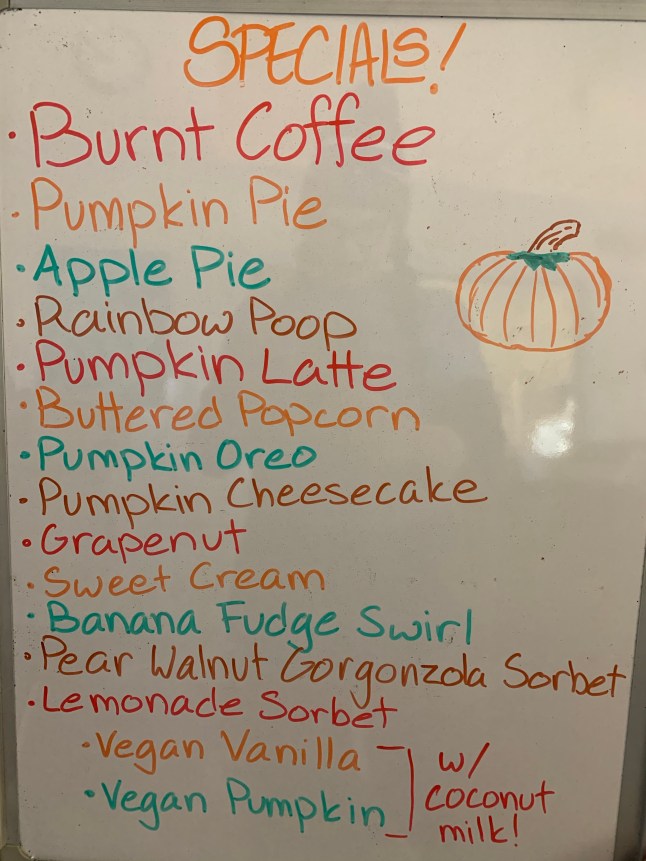 SPECIALS!
· Burnt Coffee
· Pumpkin Pie
· Apple Pie
· Rainbow Poop
· Pumpkin Latte
· Buttered Popcorn
· Pumpkin Oreo
· Pumpkin Cheesecake
· Grapenut
· Sweet Cream
· Banana Fudge Swirl
· Pear Walnut Gorgonzola Sorbet
· Lemonade Sorbet
· Vegan Vanilla
· Vegan Pumpkin
w/
coconut
milk!